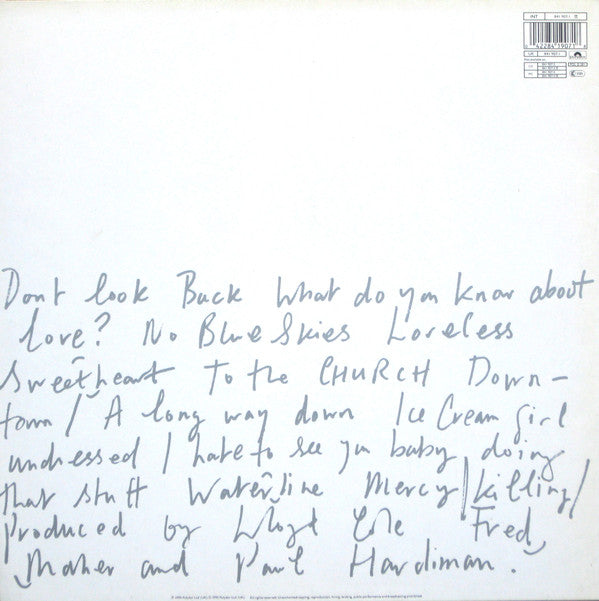 INT 841 907-1
42284 19071
Dont look Back What do you know about
love? No Blue Skies Loveless
Sweetheart To the CHURCH Down-
town/ A long way down Ice Cream girl
undressed I hate to see you baby doing
that stuff Waterline Mercy/killing/
produced by Lloyd Cole Fred
Maher and Paul Hardiman.